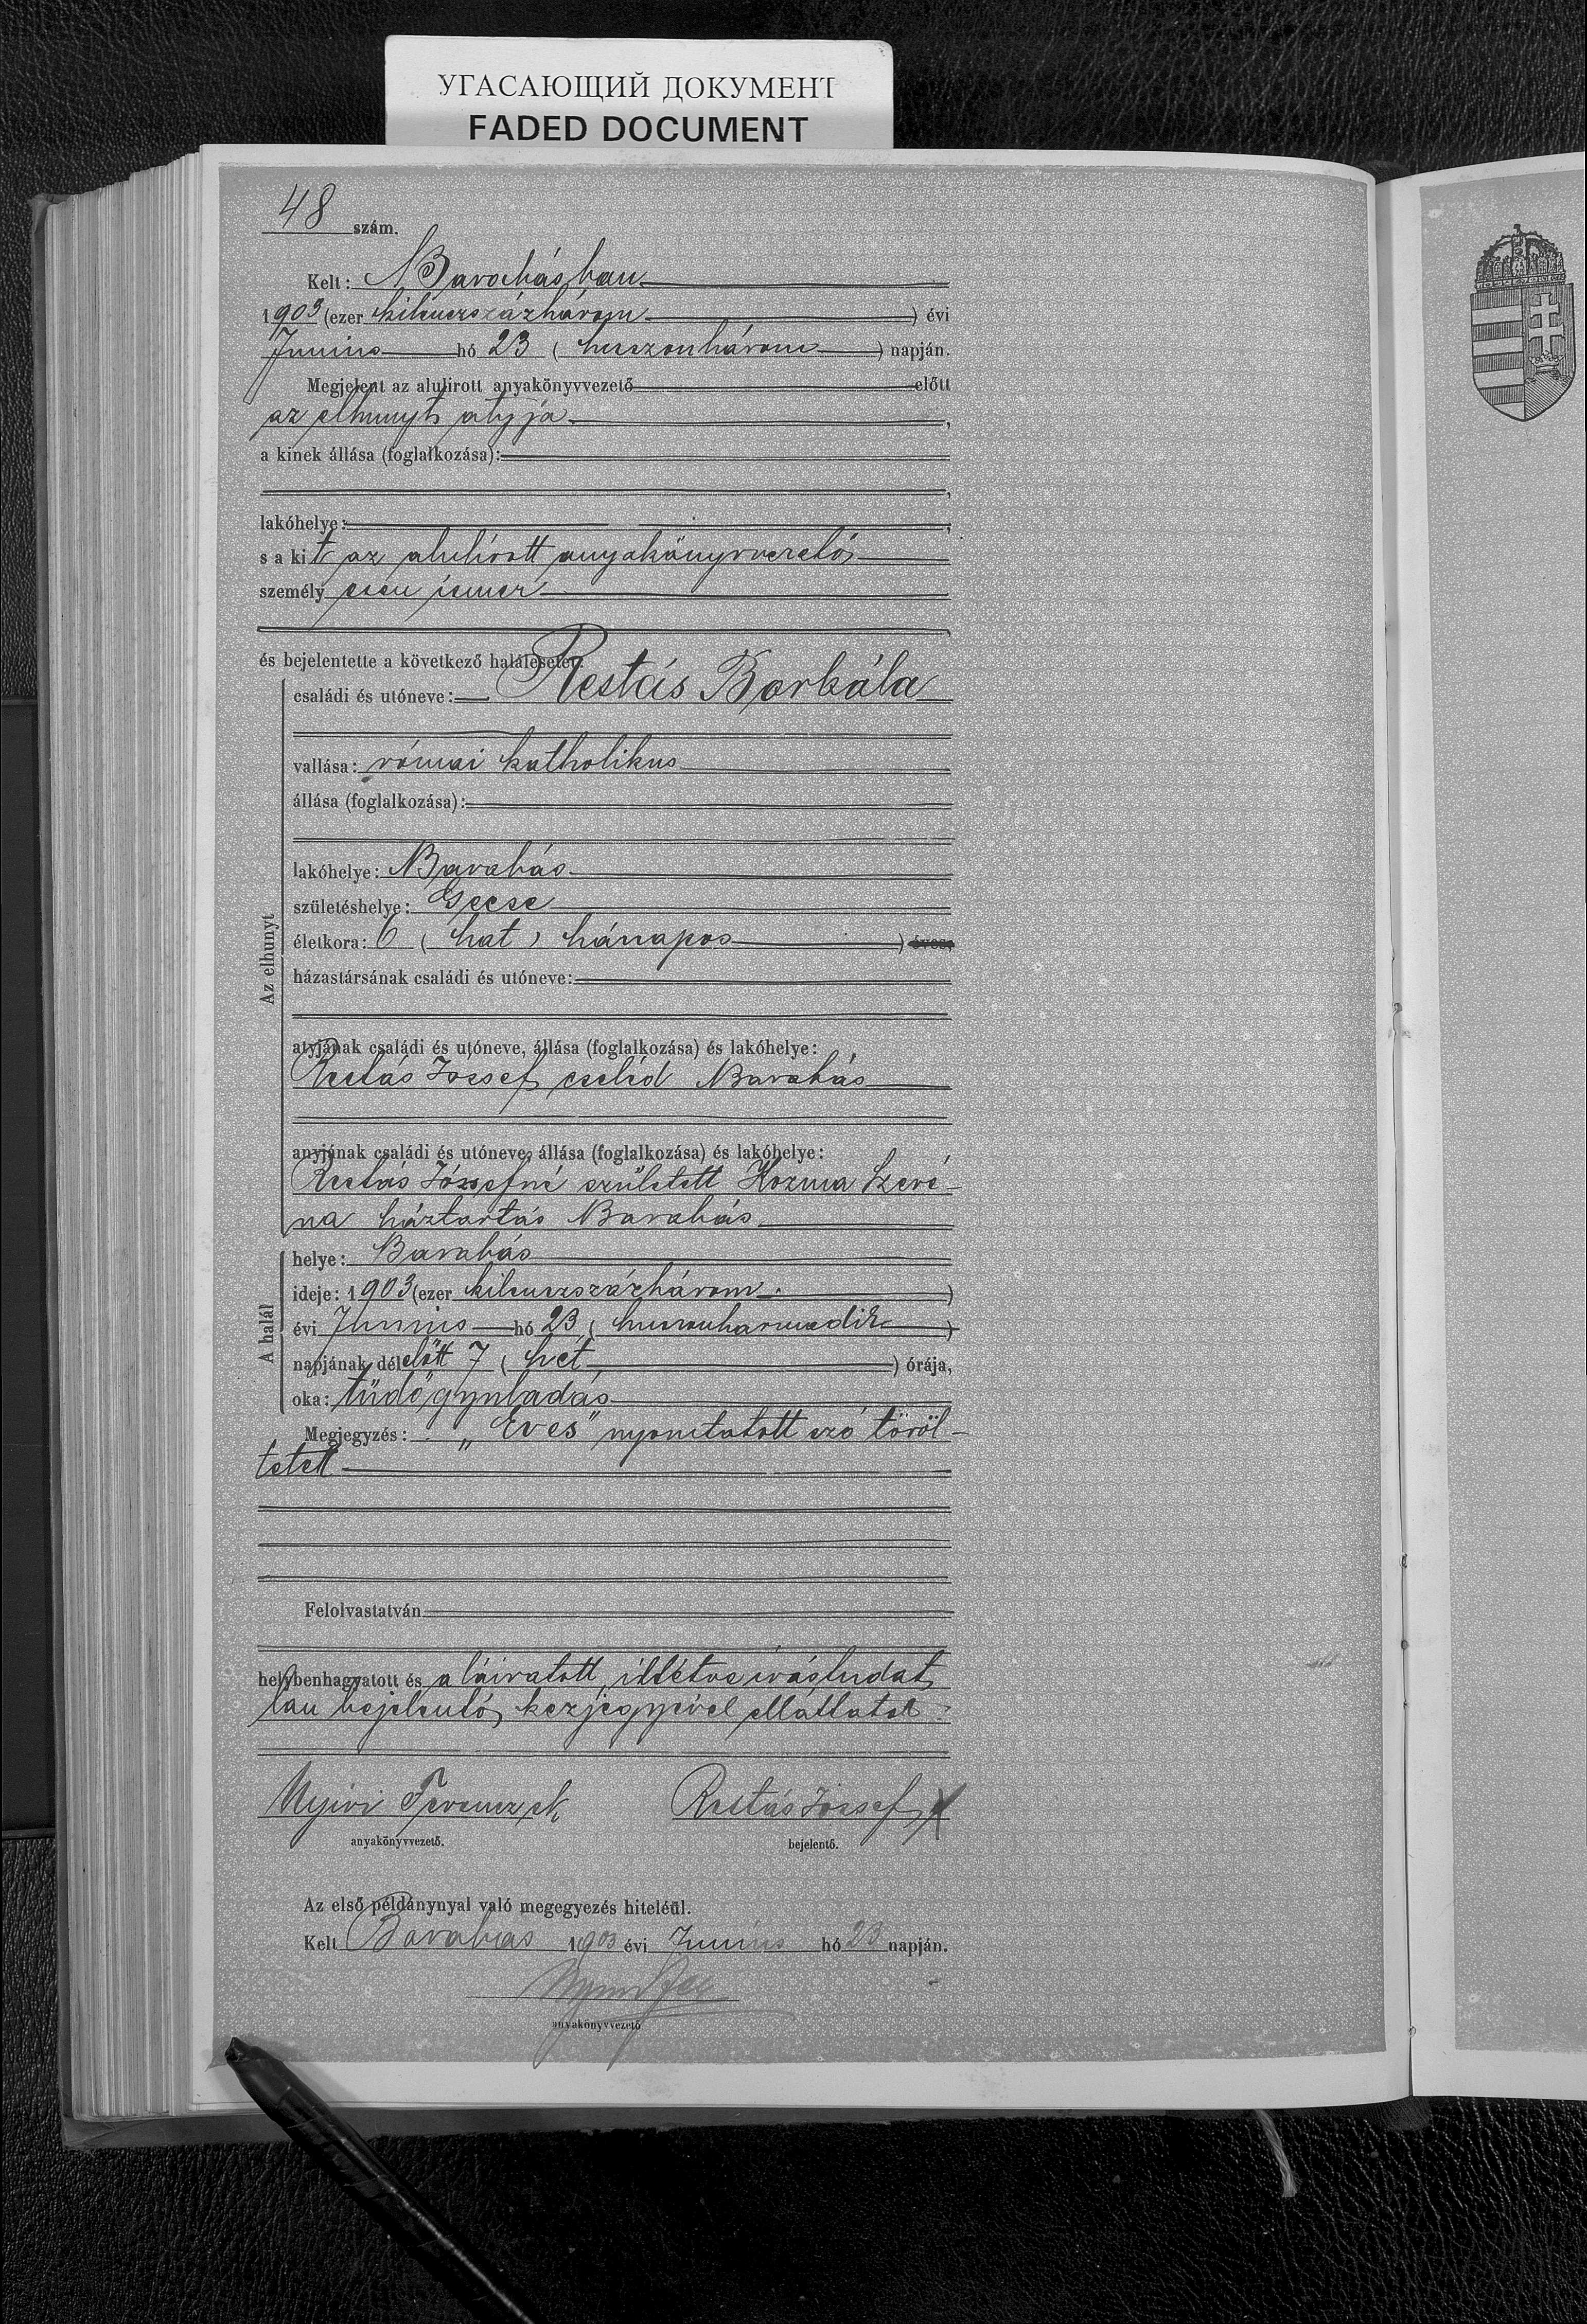 УГАСАЮЩИЙ ДОКУМЕНТ
FADED DOCUMENT
48 szám.
Kelt: Barabásban
1903 (ezer kilenczszázhárom) évi
Junius hó 23 (huszonhárom) napján.
Megjelent az alulirott anyakönyvvezető előtt
az elhunyt atyja,
a kinek állása (foglalkozása):
lakóhelye:
s a kit az alulírott anyakönyvvezető
személyesen ismer
és bejelentette a következő halálesetet:
Az elhunyt
családi és utóneve: Restás Borbála
vallása: római katholikus
állása (foglalkozása):
lakóhelye: Barabás
születéshelye: Gecse
életkora: 6 (hat) hónapos) éves,
házastársának családi és utóneve:
atyjának családi és utóneve, állása (foglalkozása) és lakóhelye:
Restás József cseléd Barabás
anyjának családi és utóneve, állása (foglalkozása) és lakóhelye:
Restás Józsefné született Kozma Szeré-
na háztartás Barabás
A halál
helye: Barabás
ideje: 1903 (ezer kilenczszázhárom)
évi Junius hó 23 (huszonharmadik)
napjának délelőtt 7 (hét) órája,
oka: tüdőgyuladás
Megjegyzés: „Éves" nyomtatott szó töröl-
tetett
Felolvastatván
helybenhagyatott és aláiratott, illetve irástudat
lan bejelentő kezjegyével elláttatott
Nyiri Ferencz sk Restás József X
anyakönyvvezető. bejelentő.
Az első példánynyal való megegyezés hiteléül.
Kelt Barabás 1903 évi Junius hó 23 napján.
anyakönyvvezető